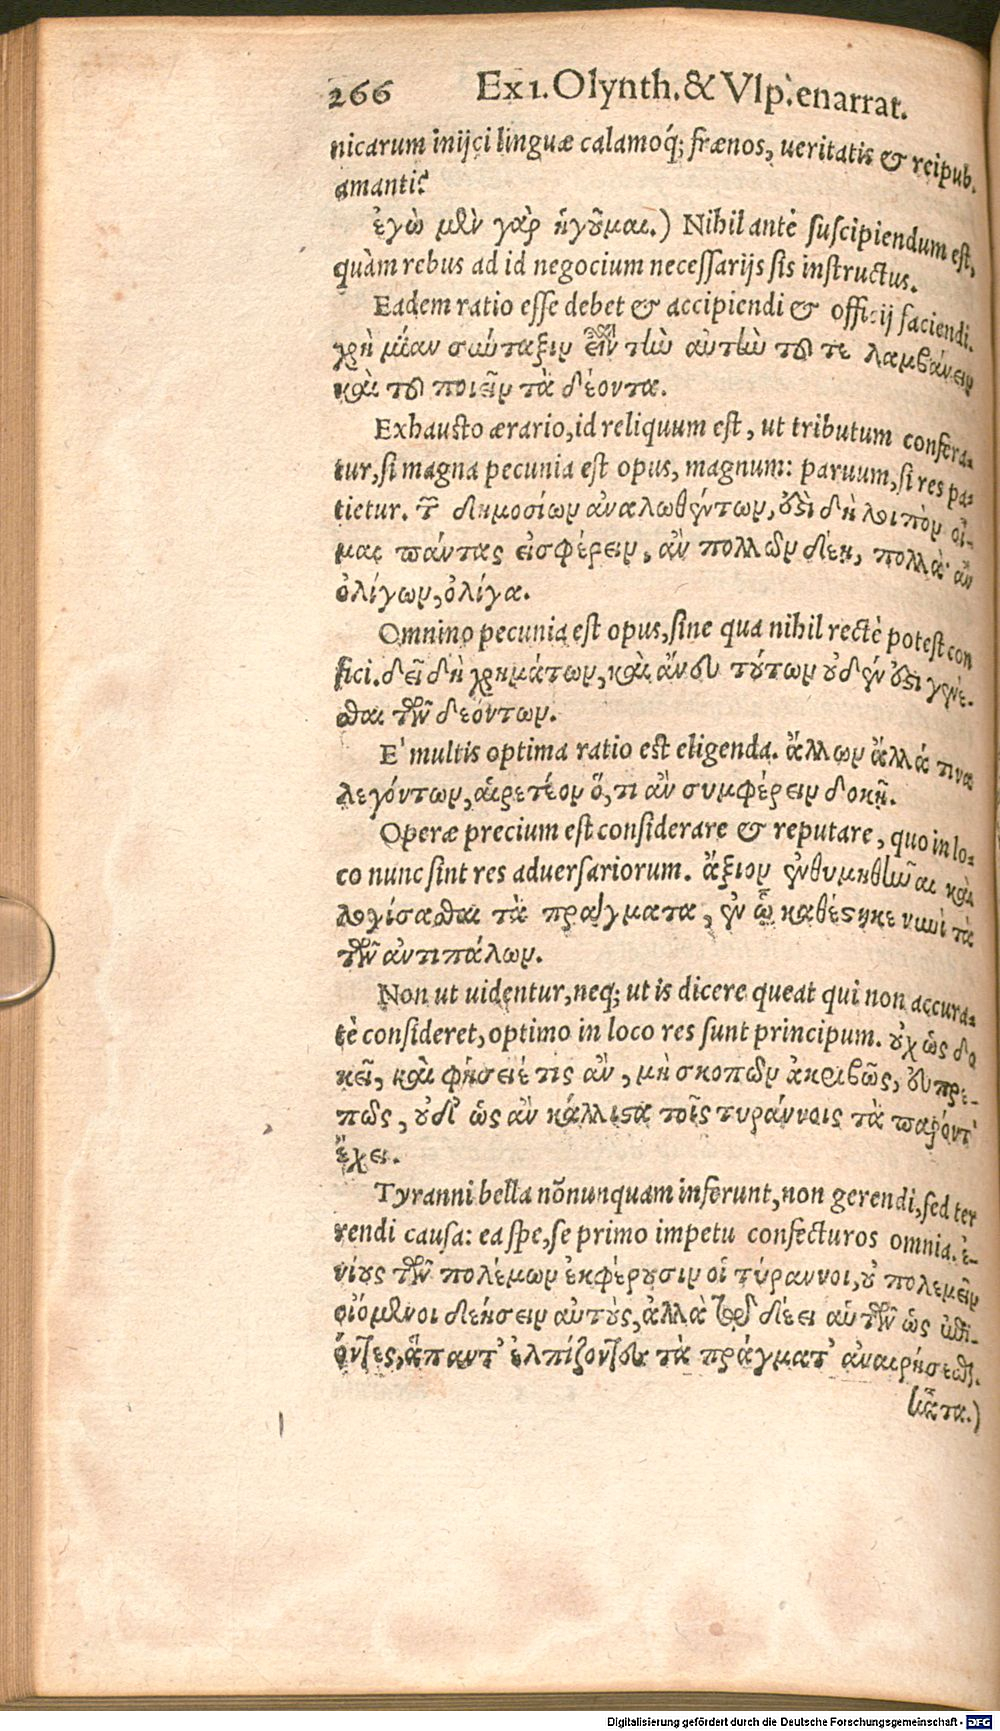 266 Ex 1. Olynth. & Vlp. enarrat.
nicarum inijci linguæ calamoq́; frænos, ueritatis & reipub.
amanti?
ἐγὼ μὲν γὰρ ἡγοῦμαι.) Nihil antè suscipiendum est,
quàm rebus ad id negocium necessarijs sis instructus.
Eadem ratio esse debet & accipiendi & officij faciendi.
χρὴ μίαν σύνταξιν εἶναι τὴν αὐτὴν τοῦ τε λαμβάνειν
καὶ τοῦ ποιεῖν τὰ δέοντα.
Exhausto ærario, id reliquum est, ut tributum confera-
tur, si magna pecunia est opus, magnum: paruum, si res pa-
tietur. τῶν δημοσίων ἀναλωθέντων, ἔστι δὴ λοιπὸν οἶ-
μαι πάντας εἰσφέρειν, ἂν πολλῶν δέῃ, πολλὰ· ἂν
ὀλίγων, ὀλίγα.
Omnino pecunia est opus, sine qua nihil rectè potest con
fici. δεῖ δὴ χρημάτων, καὶ ἄνευ τούτων οὐδέν ἔστι γενέ-
σθαι τῶν δεόντων.
E' multis optima ratio est eligenda. ἄλλων ἄλλά τινα
λεγόντων, αἱρετέον ὅ, τι ἂν συμφέρειν δοκῇ.
Operæ precium est considerare & reputare, quo in lo-
co nunc sint res aduersariorum. ἄξιον ἐνθυμηθῆναι καὶ
λογίσασθαι τὰ πράγματα, ἐν ᾧ καθέστηκε νυνὶ τὰ
τῶν ἀντιπάλων.
Non ut uidentur, neq; ut is dicere queat qui non accura-
tè consideret, optimo in loco res sunt principum. οὐχ ὡς δο
κεῖ, καὶ φήσειέ τις ἂν, μὴ σκοπῶν ἀκριβῶς, εὐπρε-
πῶς, οὐδ' ὡς ἂν κάλλιστα τοῖς τυράννοις τὰ παρόντ'
ἔχει.
Tyranni bella nõnunquam inferunt, non gerendi, sed ter
rendi causa: ea spe, se primo impetu confecturos omnia. ἐ-
νίους τῶν πολέμων ἐκφέρουσιν οἱ τύραννοι, οὐ πολεμεῖν
οἰόμενοι δεήσειν αὐτοὺς, ἀλλὰ δέει αὑτῶν ὡς ἐπι-
όντες, ἅπαντ' ἐλπίζοντες τὰ πράγματ' ἀναιρήσεσθ.
Digitalisierung gefördert durch die Deutsche Forschungsgemeinschaft - DFG